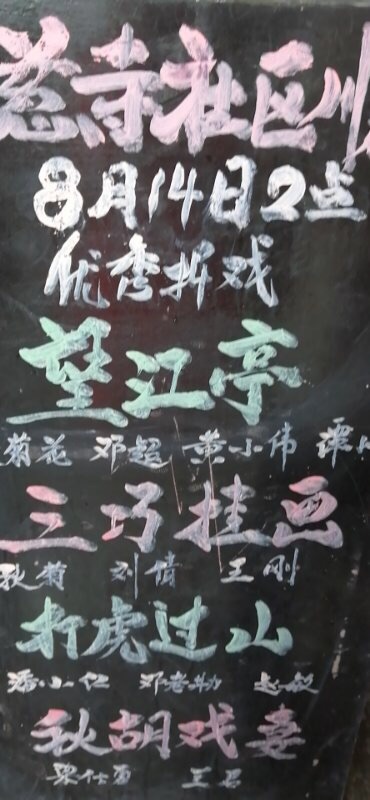 慈寺社区川
8月14日2点
优秀折戏
望江亭
菊花 邓超 黄小伟 谭
三巧挂画
秋菊 刘倩 王刚
打虎过山
小仁 邓老勒
秋胡戏妻
梁仕勇 王君